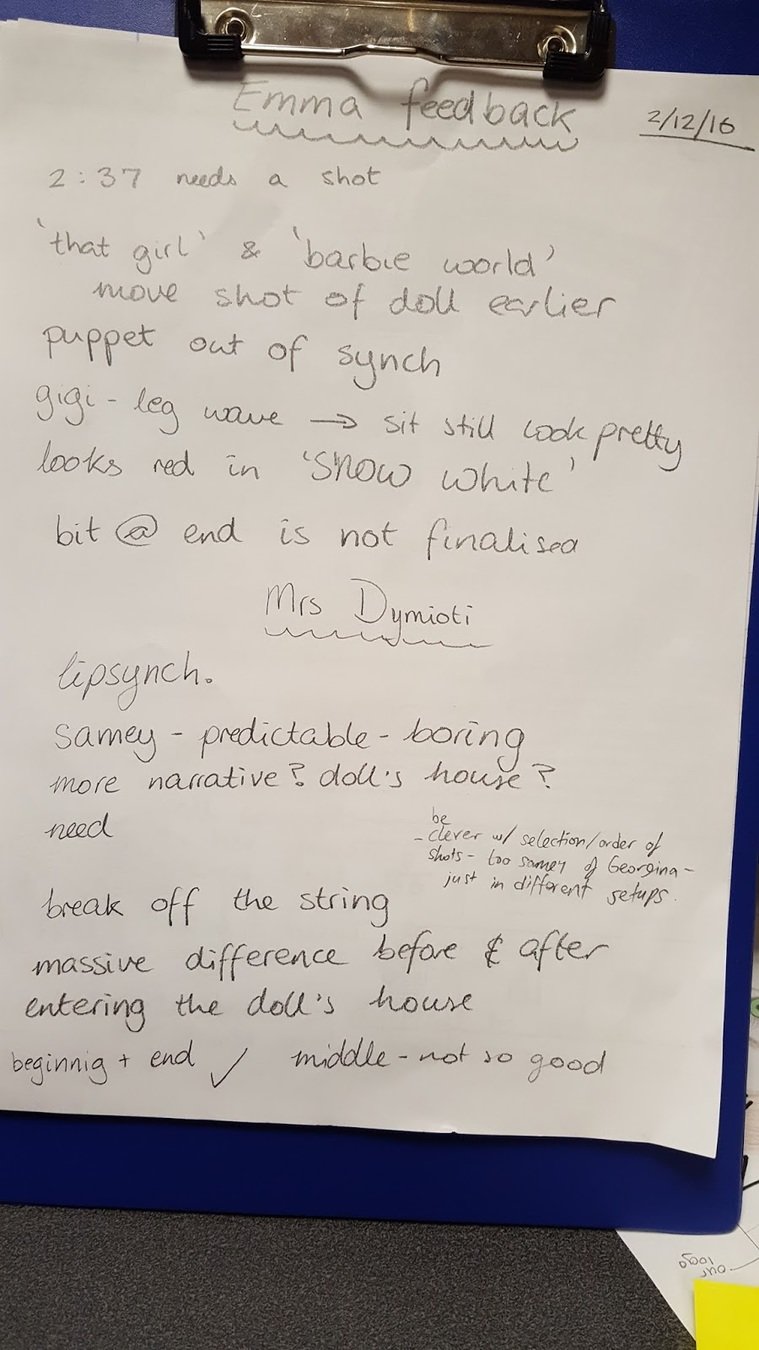 Emma feedback
2/12/16
2:37 needs a shot
'that girl' & 'barbie world'
move shot of doll earlier
puppet out of synch
gigi - leg wave → sit still look pretty
looks red in 'snow white'
bit @ end is not finalised
Mrs Dymioti
lipsynch.
samey - predictable - boring
more narrative? doll's house?
need
be
- clever w/ selection/order of
shots - too samey of Georgina -
just in different setups.
break off the string
massive difference before & after
entering the doll's house
beginnig + end ✓ middle - not so good
our
logo